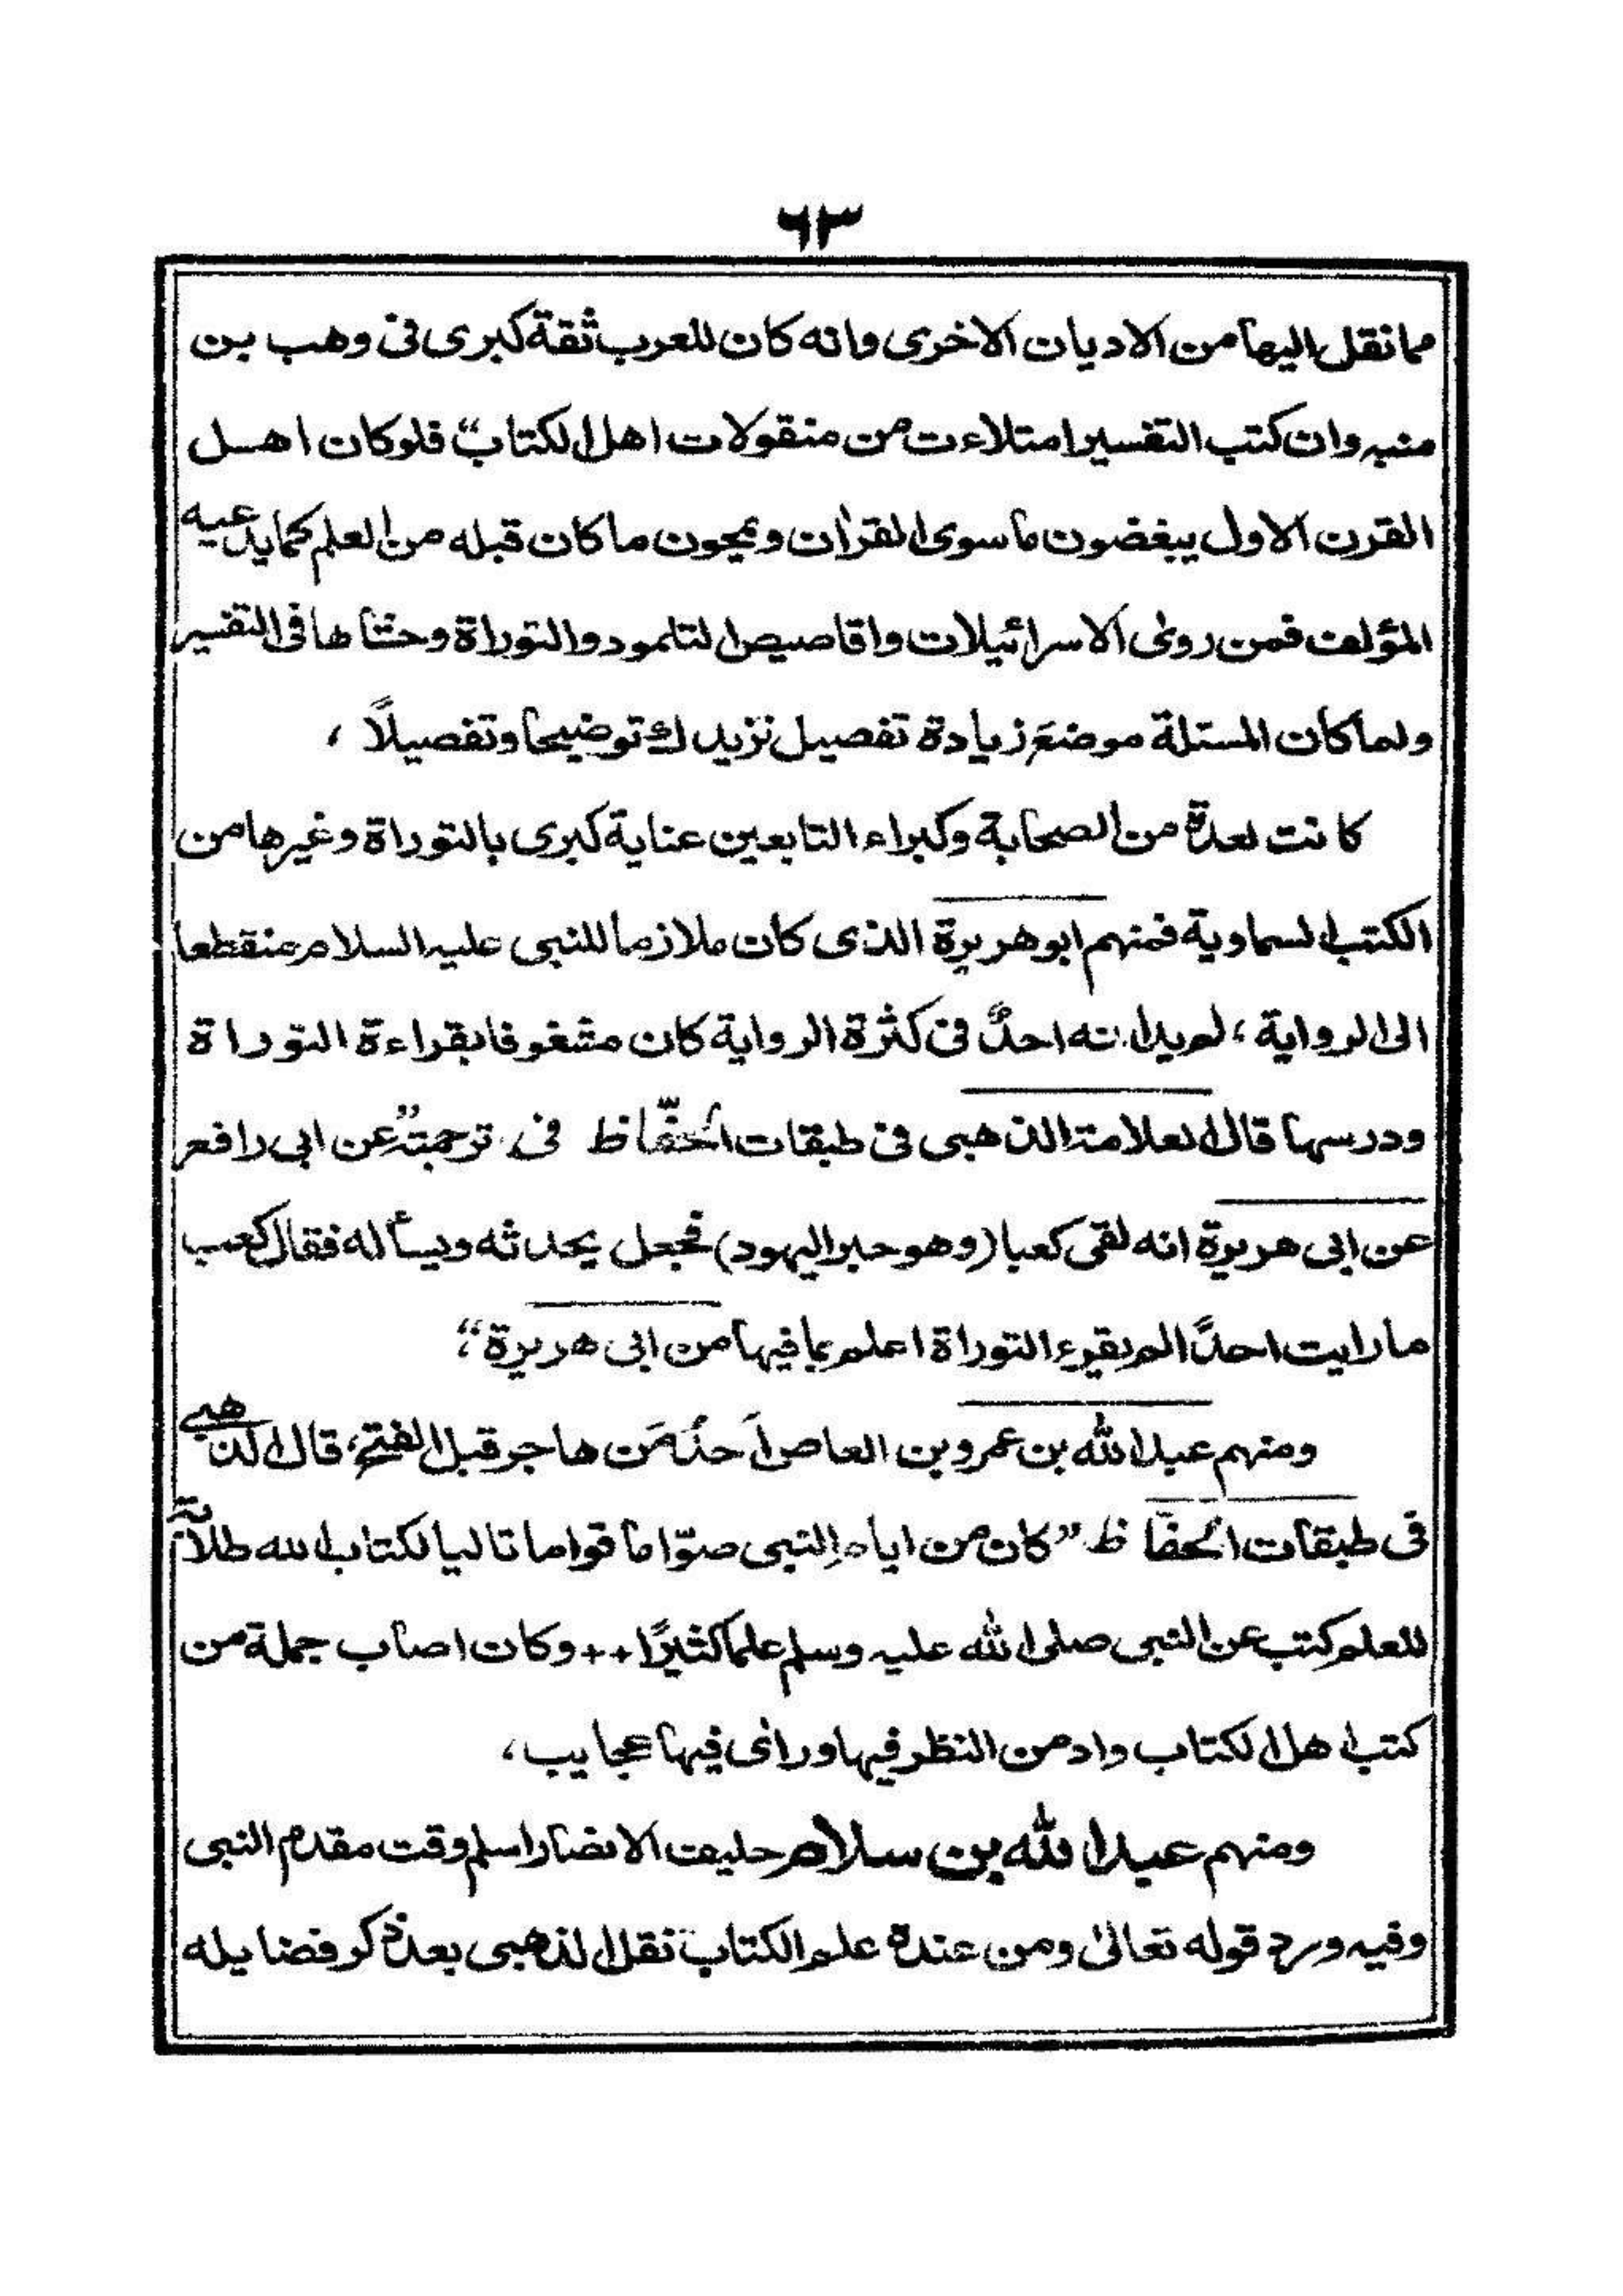 ٦٣
مما نقل اليها من الاديان الاخرى وانه كان للعرب ثقة كبرى فى وهب بن
منبه وان كتب التفسير امتلاءت من منقولات اهل الكتاب“ فلو كان اهل
القرن الاول يبغضون ما سوى القرآن ويمحون ما كان قبله من العلم كما يدعيه
المؤلف فمن روى الاسرائيلات واقاصيص التلمود والتوراة وحشاها فى التفسير
ولما كان المسئلة موضع زيادة تفصيل نزيدك توضيحا وتفصيلاً ،
كانت لعدة من الصحابة وكبراء التابعين عناية كبرى بالتوراة وغيرها من
الكتب السماوية فمنهم ابو هريرة الذى كان ملازما للنبى عليه السلام منقطعا
الى الرواية ، لم يدانه احدٌ فى كثرة الرواية كان مشغوفا بقراءة التوراة
ودرسها قال العلامة الذهبى فى طبقات الحفّاظ فى ترجمته ”عن ابى رافع
عن ابى هريرة انه لقى كعبا (وهو حبر اليهود) فجعل يحدثه ويسأله فقال كعب
ما رايت احدًا لم يقرء التوراة اعلم بما فيها من ابى هريرة“
ومنهم عبد الله بن عمرو بن العاص اَحدُ مَن هاجر قبل الفتح، قال الذهبى
فى طبقات الحفاظ ”كان من ايام النبى صوّاما قواما تاليا لكتاب الله طلاّبة
للعلم كتب عن النبى صلى الله عليه وسلم علما كثيرًا ++ وكان اصاب جملة من
كتب اهل الكتاب وادمن النظر فيها وراى فيها عجايب،
ومنهم عبد الله بن سلام حليف الانصار اسلم وقت مقدم النبى
وفيه ورد قوله تعالىٰ ومن عنده علم الكتاب نقل الذهبى بعد ذكر فضايله